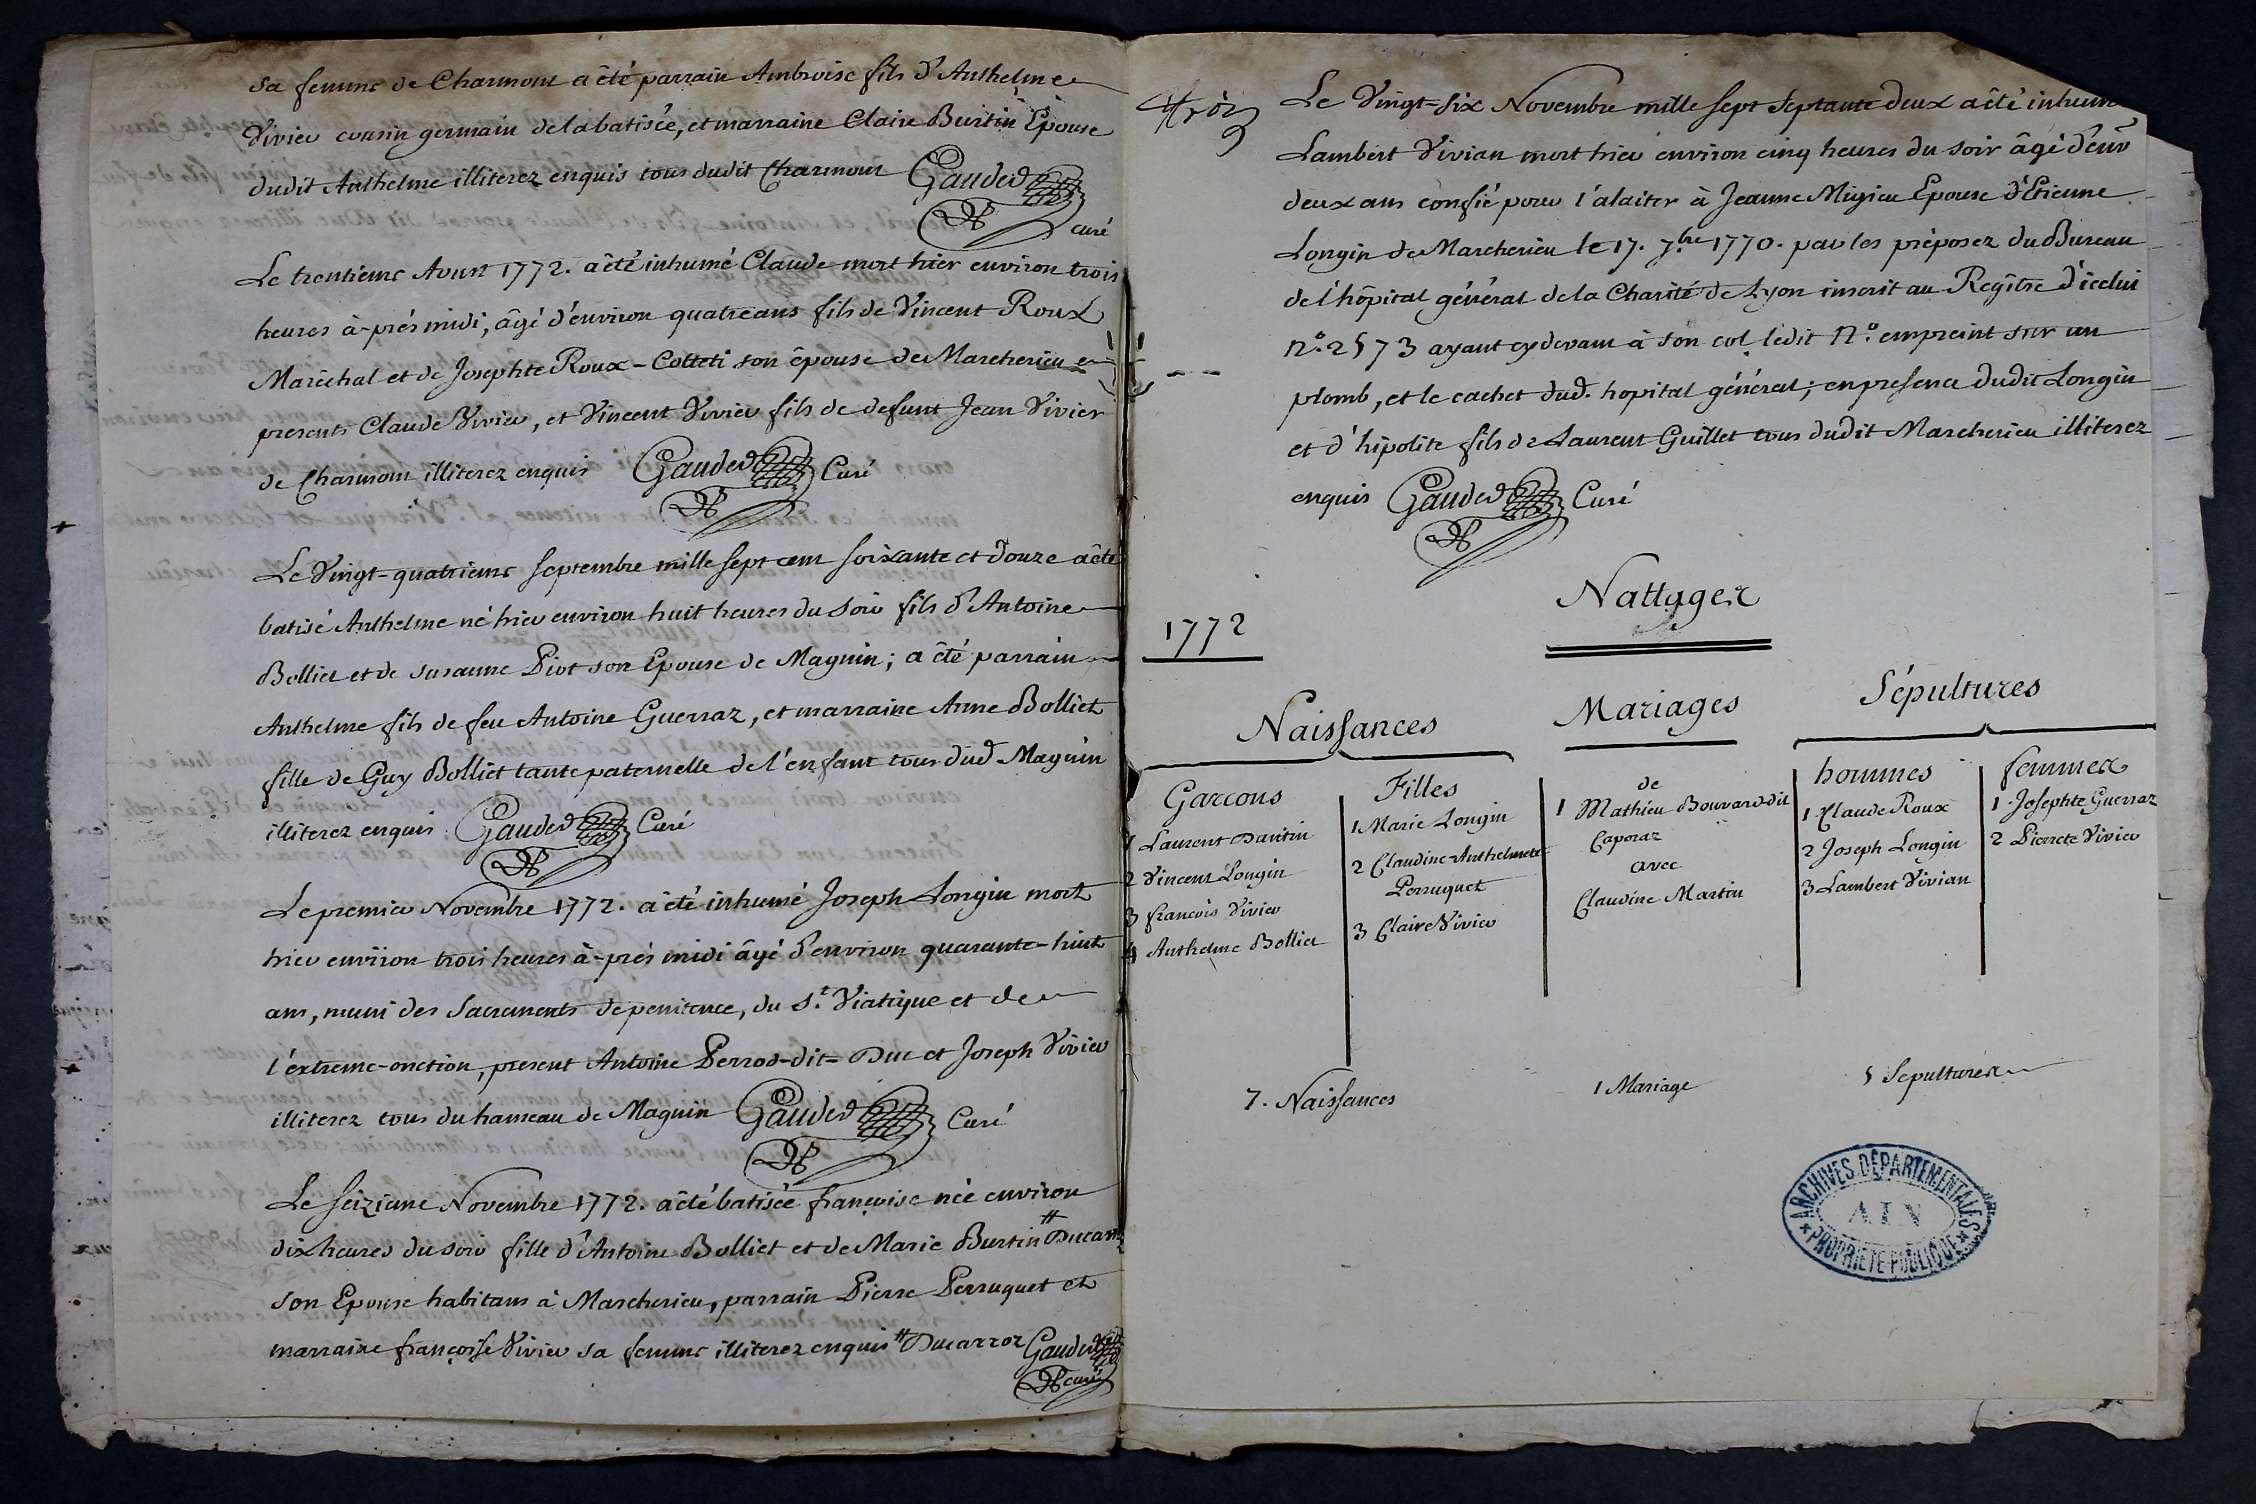 sa femme de Charmont a été parrain Ambroise fils d'Anthelme
Vivier cousin germain de la batisée, et marraine Claire Burtin Epouse
dudit Anthelme illiterez enquis tous dudit Charmont Gauded
curé
Le trentieme Aoust 1772. a été inhumé Claude mort hier environ trois
heures à-prés midi, âgé d'environ quatre ans fils de Vincent Roux
Maréchal et de Josephte Roux-Colleti son épouse de Marcherieu
presents Claude Vivier, et Vincent Vivier fils de defunt Jean Vivier
de Charmont illiterez enquis Gauded Curé
Le Vingt-quatrieme septembre mille sept cent soixante et douze a été
batisé Anthelme né hier environ huit heures du soir fils d'Antoine
Bolliet et de susanne Piot son Epouse de Magnin; a été parrain
Anthelme fils de feu Antoine Guerraz, et marraine Anne Bolliet
fille de Guy Bolliet tante paternelle de l'enfant tous dud Magnin
illiterez enquis Gauded Curé
Le premier Novembre 1772. a été inhumé Joseph Longin mort
hier environ trois heures à-prés midi âgé d'environ quarante-huit
ans, muni des Sacrements de penitence, du st. Viatique et de
l'éxtreme-onction, present Antoine Perrod-dit-Duc et Joseph Vivier
illiterez tous du hameau de Magnin Gauded Curé
Le seizieme Novembre 1772. a été batisée françoise née environ
dix heures du soir fille d'Antoine Bolliet et de Marie Burtin #
son Epouse habitans à Marcherieu, parrain Pierre Perruquet et
marraine françoise Vivier sa femme illiterez enquis # Ducarroz Gauded
curé
Le Vingt-six Novembre mille sept septante deux a été
Lambert Vivian mort hier environ cinq heures du soir âgé
deux ans confié pour l'alaiter à Jeanne Migieu Epouse d'Etienne
Longin de Marcherieu le 17. 7.bre 1770. par les préposez du Bureau
de l'hôpital général de la Charité de Lyon inscrit au Regître d'icelui
n.o 2573 ayant cy devant à son col ledit N.o empreint sur un
plomb, et le cachet dud. hopital général; en presence dudit Longin
et d'hipolite fils de Laurent Guillet tous dudit Marcherieu illiterez
enquis Gauded Curé
Nattages
1772
Naissances
Mariages
Sépultures
Garcons
Filles
hommes
femmes
1 Laurent Dantin
2 Vincent Longin
3 francois Vivier
4 Anthelme Bolliet
1 Marie Longin
2 Claudine-Anthelmete
Perruquet
3 Claire Vivier
de
1 Mathieu Bouvard dit
Caporaz
avec
Claudine Martin
1 Claude Roux
2 Joseph Longin
3 Lambert Vivian
1. Josephte Guerraz
2 Pierrete Vivier
7. Naissances
1 Mariage
5 Sepultures
ARCHIVES DÉPARTEMENTALES
AIN
PROPRIÉTÉ PUBLIQUE